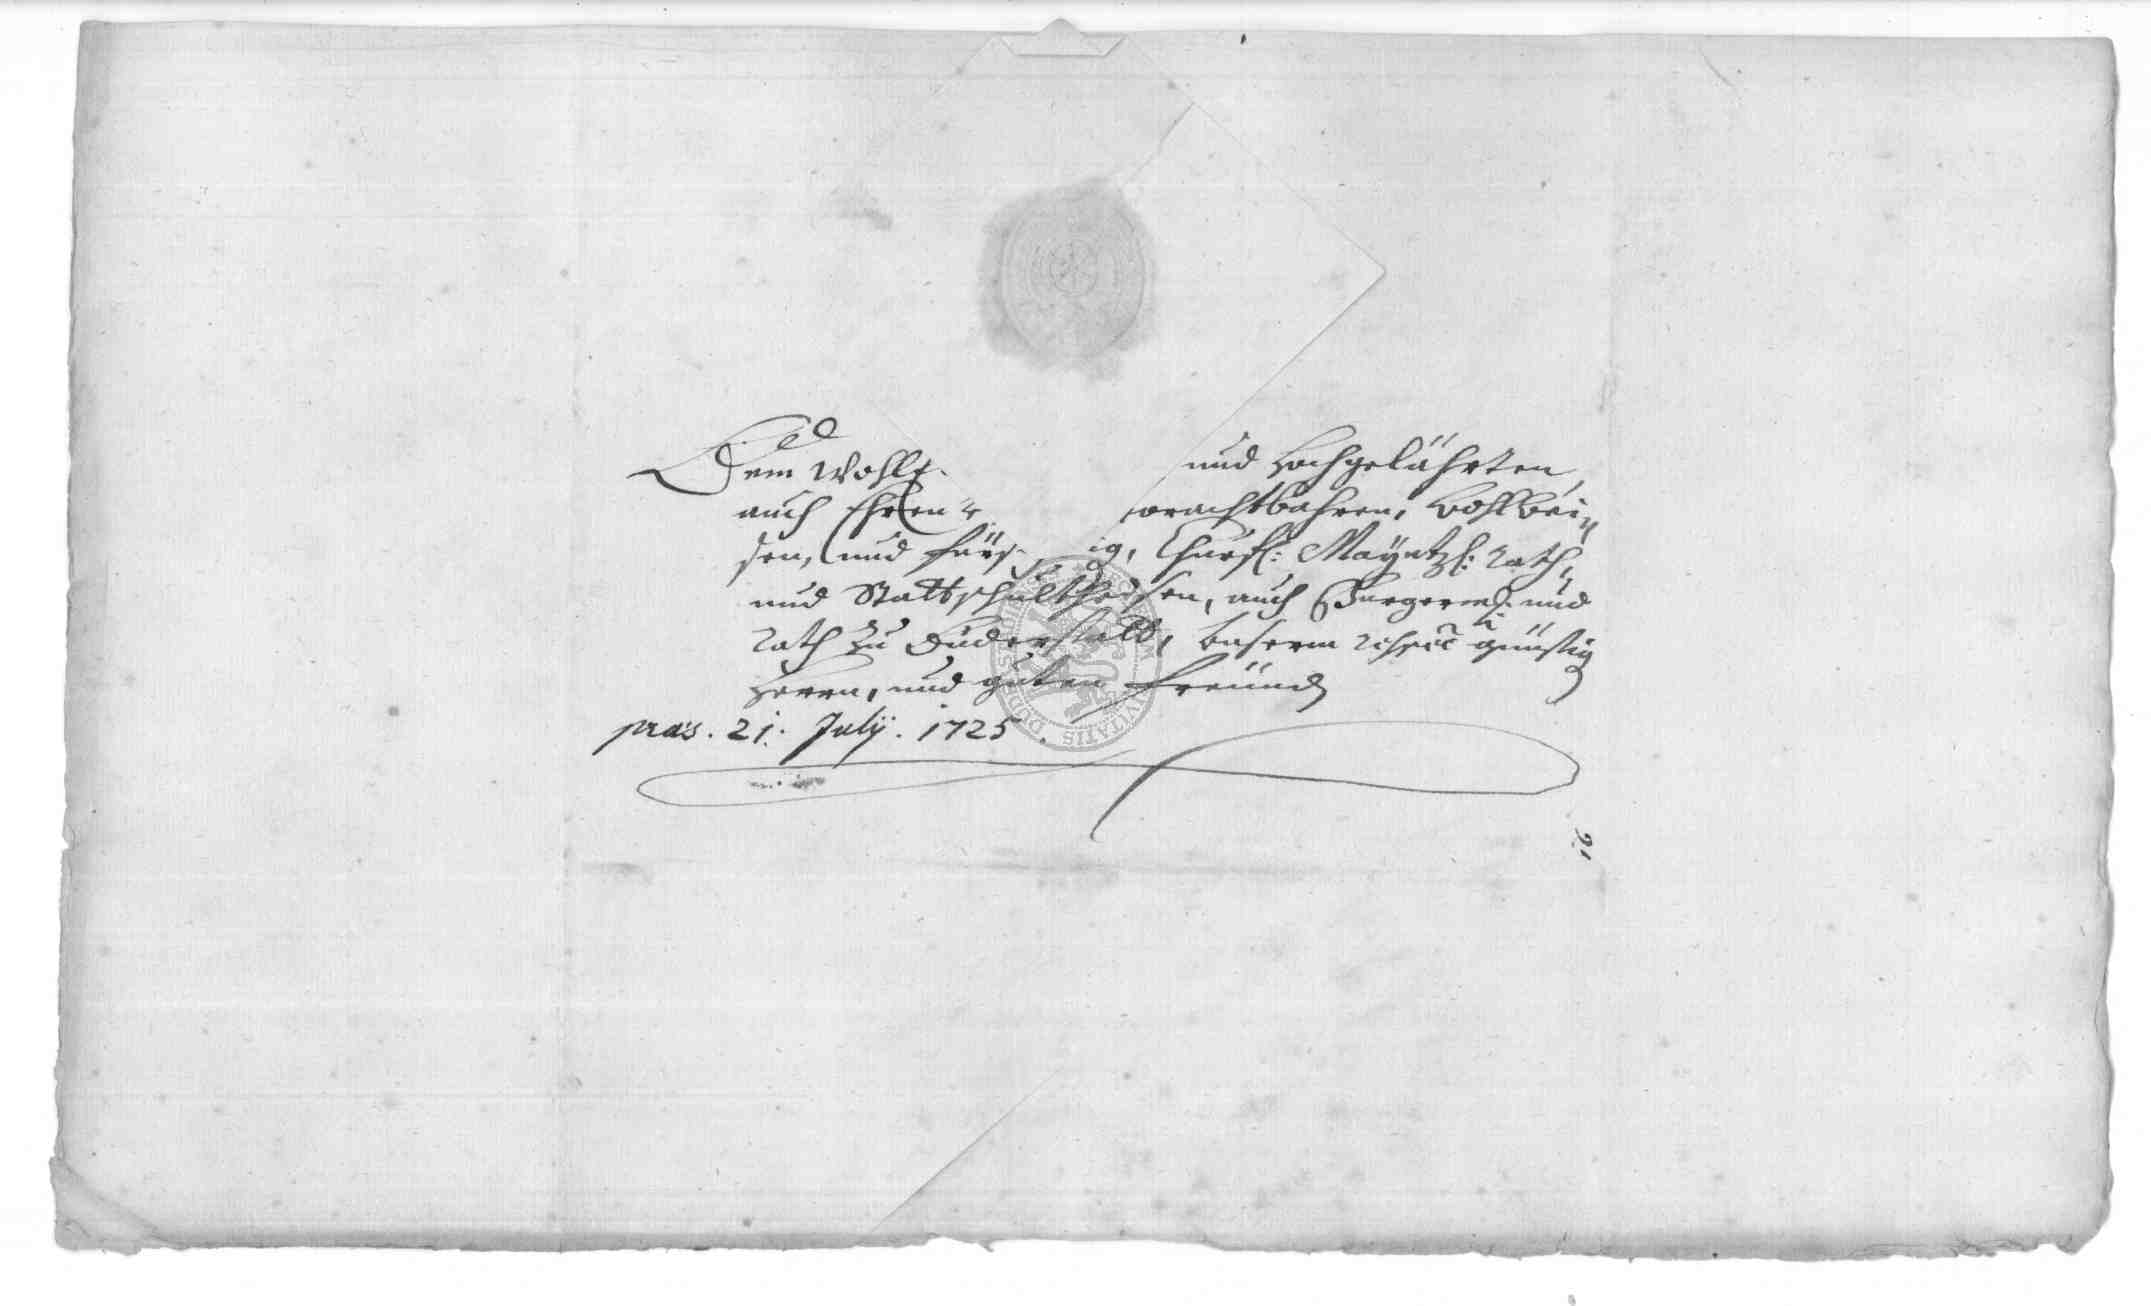 Dem Wohl und Hochgelährten,
auch Ehren vorachtbahren, Wohlwei
sen, und fürs ig, Churfl: Mayntzl: Rath,
und Stattschultheissen, auch Burgerm: und
Rath zu Duderstatt, Unserm günstig
Herrn, und guten Freund
præs. 21. July. 1725.
CIVITATIS